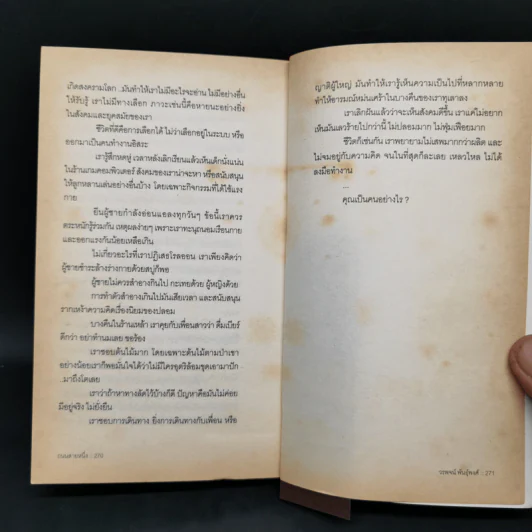 เกิดสงครามโลก ..มันทำให้เราไม่มีอะไรจะอ่าน ไม่มีอย่างอื่น
ให้รับรู้ เราไม่มีทางเลือก ภาวะเช่นนี้คือหายนะอย่างยิ่ง
ในสังคมและยุคสมัยของเรา
ชีวิตที่ดีคือการเลือกได้ ไม่ว่าเลือกอยู่ในระบบ หรือ
ออกมาเป็นคนทำงานอิสระ
เรารู้สึกหดหู่ เวลาหลังเลิกเรียนแล้วเห็นเด็กนั่งแน่น
ในร้านเกมคอมพิวเตอร์ สังคมของเราน่าจะหา หรือสนับสนุน
ให้ลูกหลานเล่นอย่างอื่นบ้าง โดยเฉพาะกิจกรรมที่ได้ใช้แรง
กาย
ยืนผู้ชายกำลังอ่อนแอลงทุกวันๆ ข้อนี้เราควร
ตระหนักรู้ร่วมกัน เหตุผลง่ายๆ เพราะเราทะนุถนอมเรือนกาย
และออกแรงกันน้อยเหลือเกิน
ไม่เกี่ยวอะไรที่เราปฏิเสธโรลออน เราเพียงคิดว่า
ผู้ชายชำระล้างร่างกายด้วยสบู่ก็พอ
ผู้ชายไม่ควรสำอางเกินไป กะเทยด้วย ผู้หญิงด้วย
การทำตัวสำอางเกินไปมันเสียเวลา และสนับสนุน
รากเหง้าความคิดเรื่องนิยมของปลอม
บางคืนในร้านเหล้า เราคุยกับเพื่อนสาวว่า ดื่มเบียร์
ดีกว่า อย่าทำนมเลย ขอร้อง
เราชอบต้นไม้มาก โดยเฉพาะต้นไม้ตามป่าเขา
อย่างน้อยเราก็พอมั่นใจได้ว่าไม่มีใครอุตริล้อมขุดเอามาปัก
..มาถึงโคเลย
เราว่าถ้าหาทางลัดไว้บ้างก็ดี ปัญหาคือมันไม่ค่อย
มีอยู่จริง ไม่ยั่งยืน
เราชอบการเดินทาง ยิ่งการเดินทางกับเพื่อน หรือ
ถนนสายหนึ่ง : 270
ญาติผู้ใหญ่ มันทำให้เรารู้เห็นความเป็นไปที่หลากหลาย
ทำให้อารมณ์หม่นเศร้าในบางคืนของเราทุเลาลง
เราเลิกฝันแล้วว่าจะเห็นสังคมดีขึ้น เราแค่ไม่อยาก
เห็นมันเลวร้ายไปกว่านี้ ไม่ปลอมมาก ไม่ฟุ่มเฟือยมาก
ชีวิตก็เช่นกัน เราพยายามไม่เสพมากกว่าผลิต และ
ไม่จมอยู่กับความคิด จนในที่สุดก็ละเลย เหลวไหล ไม่ได้
ลงมือทำงาน
...
คุณเป็นคนอย่างไร ?
วรพจน์ พันธุ์พงศ์ : 271